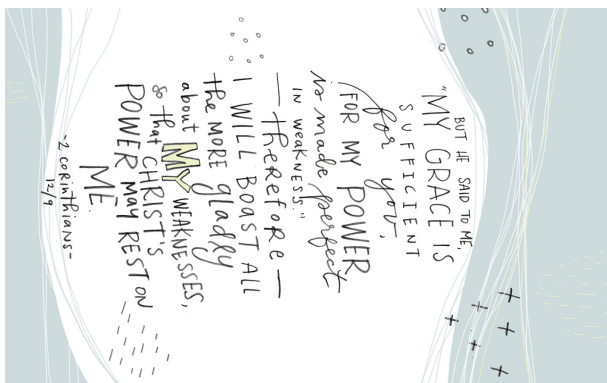 BUT HE SAID TO ME,
"MY GRACE IS
SUFFICIENT
for you,
FOR MY POWER
is made perfect
IN WEAKNESS."
— therefore —
I WILL BOAST ALL
the MORE gladly
about MY WEAKNESSES,
so that CHRIST'S
POWER MAY REST ON
ME.
-2 corinthians-
12/9